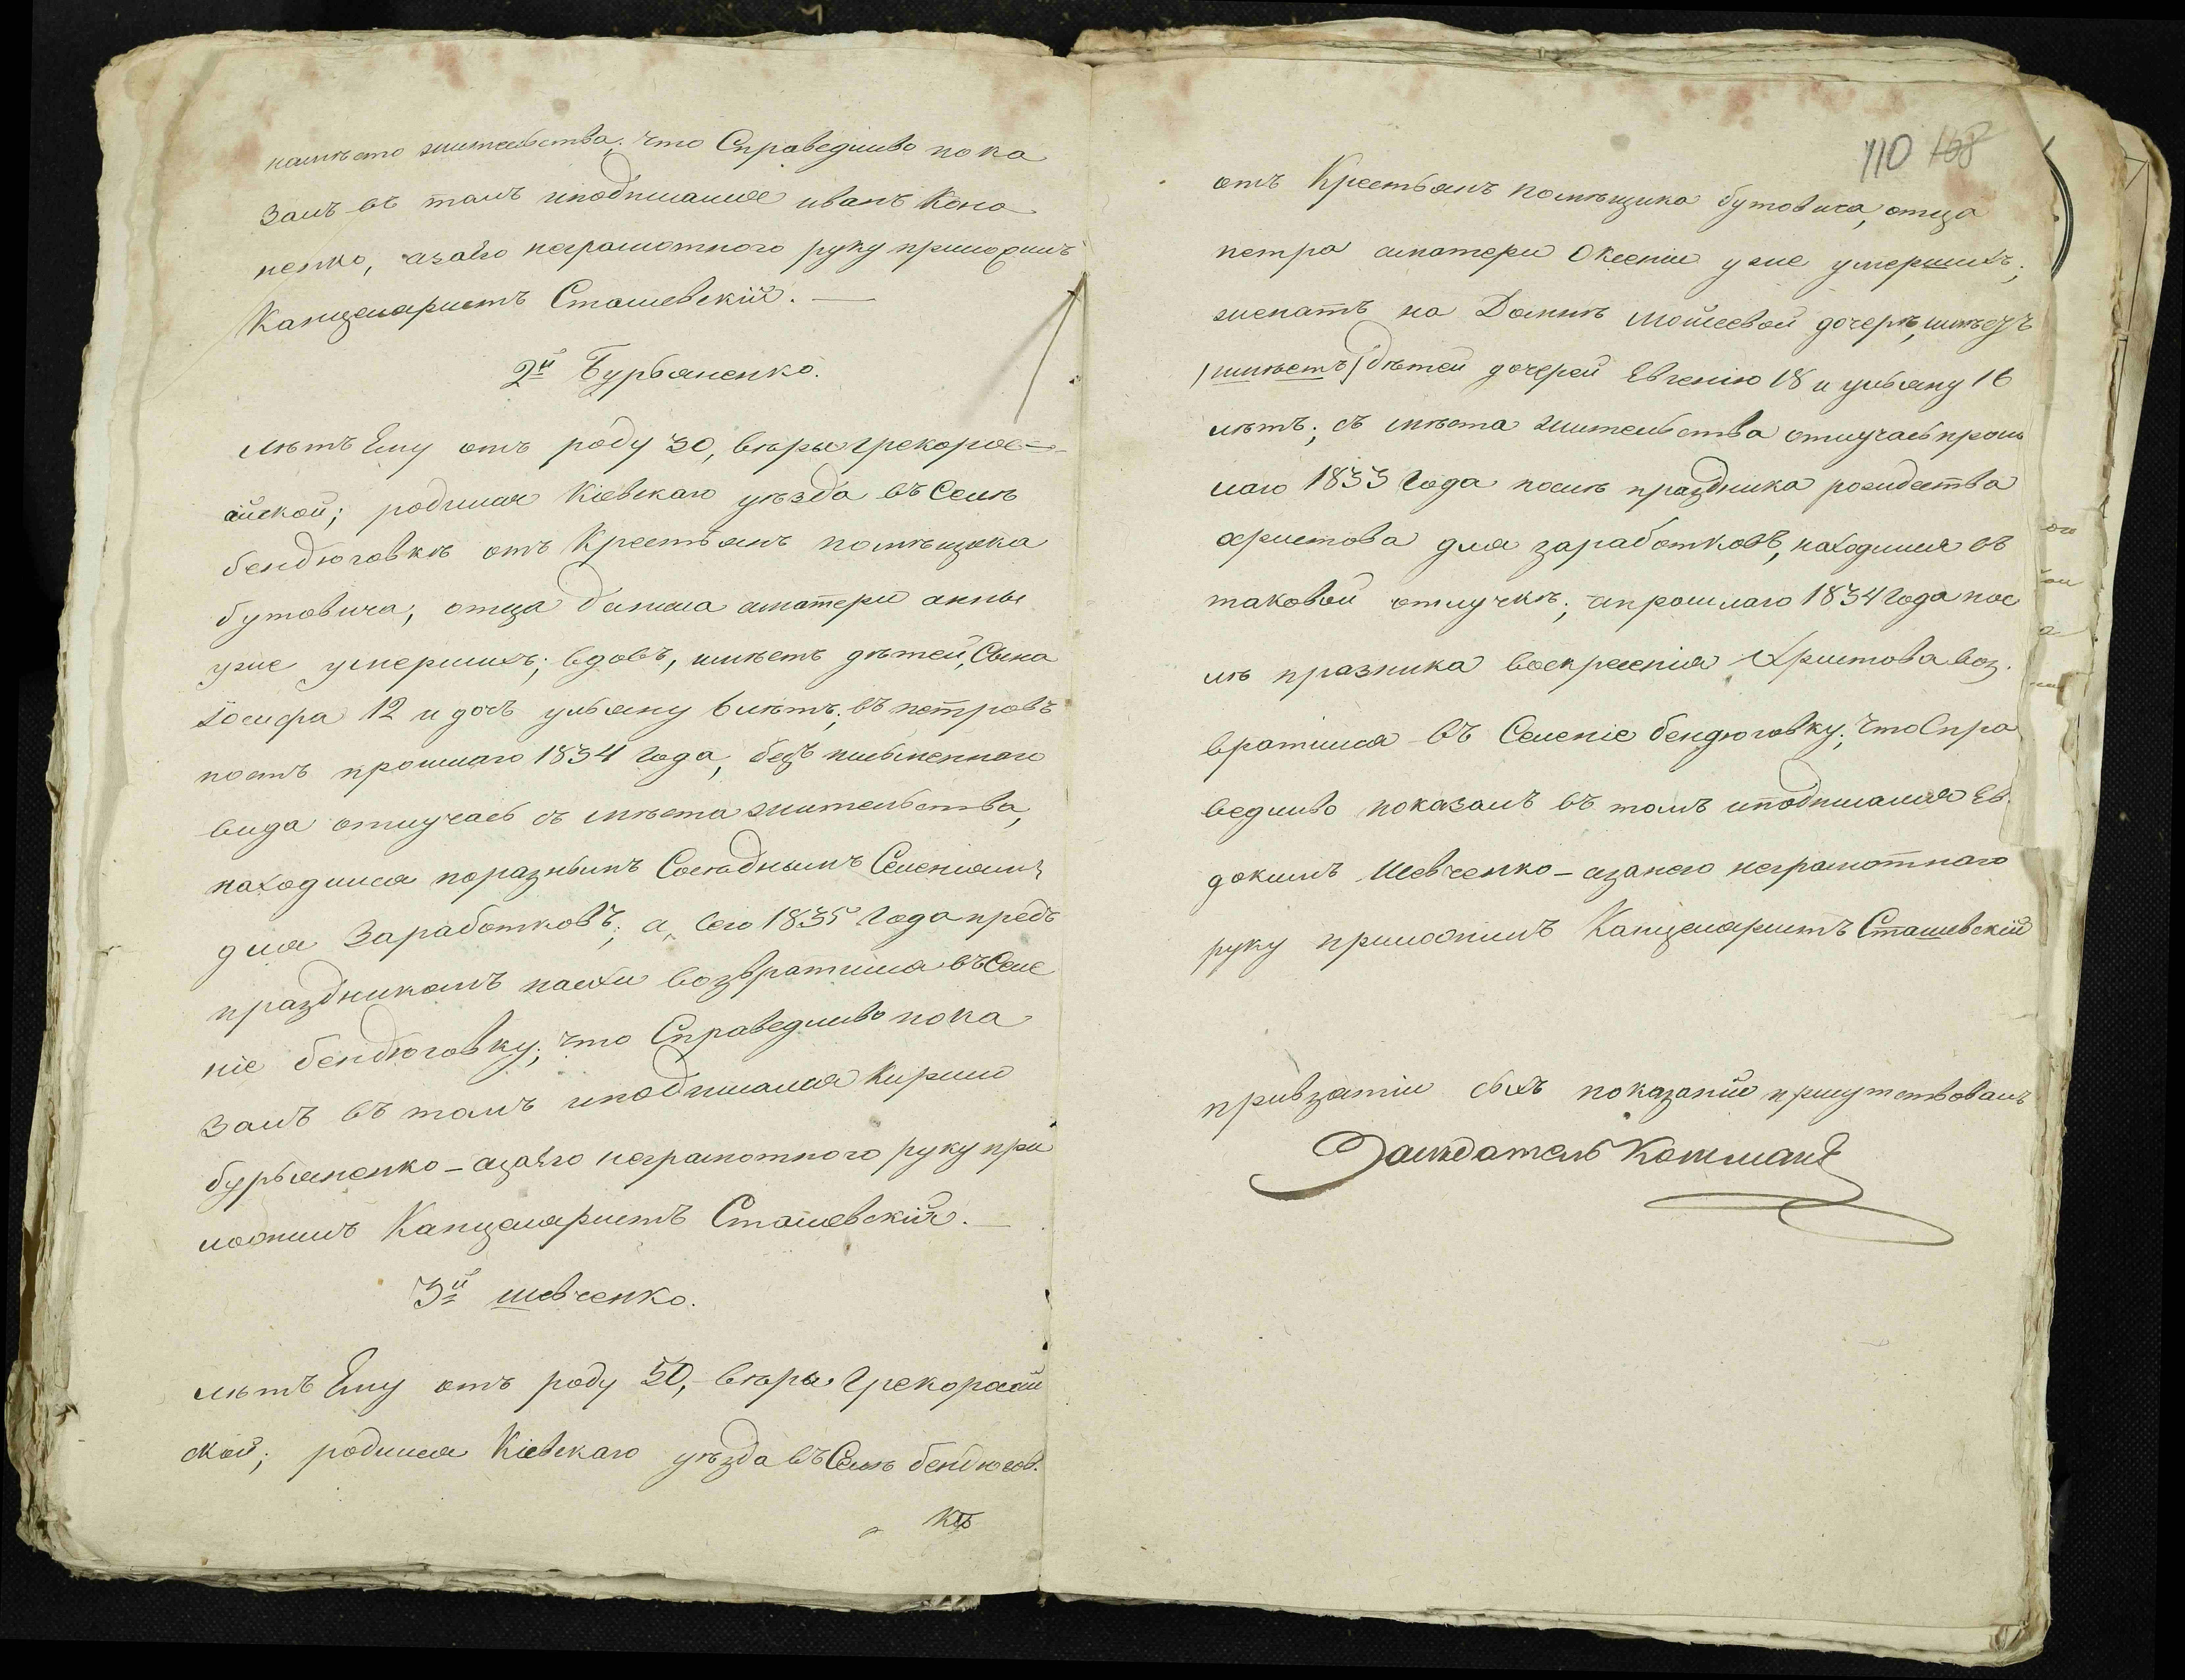 намѣсто жительства; что Справедливо пока
залъ въ томъ иподписался иванъ Коно
ненко, азаего неграмотного руку приложилъ
Канцеляристъ Сташевскій. —
2й Бурьяненко.
лѣтъ Ему отъ роду 30, вѣры грекорос=
сійской; родился Кіевскаго уѣзда въ Селѣ
бендюговкѣ отъ Крестьянъ помѣщика
бутовича, отца данила аматери анны
уже умершихъ; вдовъ, имѣетъ дѣтей, Сына
Іосифа 12 и дочь ульяну 6 лѣтъ; въ петровъ
постъ прошлаго 1834 года, безъ письменнаго
вида отлучась съ мѣста жительства,
находился поразнымъ Сосѣднымъ Селеніямъ
для Заработковъ; а Сего 1835 Года предъ
праздникомъ пасхи возвратился въ Селе
ніе бендюговку; что Справедливо пока
залъ въ томъ иподписался Кирило
бурьяненко – азаего неграмотного руку при
ложилъ Канцеляристъ Сташевскій. —
3й шевченко.
лѣтъ Ему отъ роду 50, вѣры Грекоросій
ской; родился Кіевскаго уѣзда въ Селѣ бендюгов.
кѣ
110 168
отъ Крестьянъ помѣщика бутовича, отца
петра аматери Оксеніи уже умершихъ;
женатъ на Домнѣ мойсеевой дочерѣ,
/имѣетъ/ дѣтей дочерей Евгенію 18 и ульяну 16
лѣтъ; съ мѣста жительства отлучась прош
лаго 1833 Года послѣ праздника рождества
христова для заработковъ, находился въ
таковой отлучкѣ; ипрошлаго 1834 Года пос
лѣ празника воскресенія Христова воз.
вратился въ Селеніе бендюговку; Что Спра
ведливо показалъ въ томъ иподписался Ев.
докимъ Шевченко – азанего неграмотнаго
руку приложилъ Канцеляристъ Сташевскій
привзятіи сихъ показаній присутствовалъ
Засѣдатель